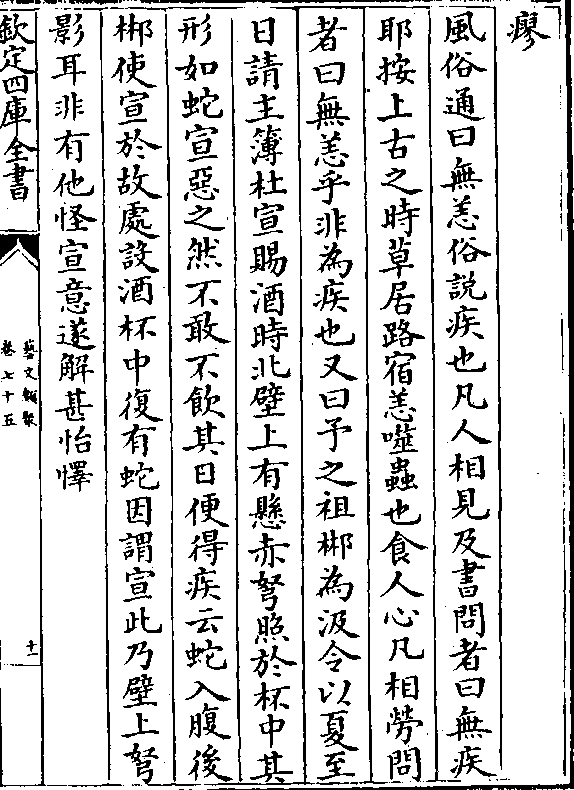 瘳
風俗通曰無恙俗説疾也凡人相見及書問者曰無疾
耶按上古之時草居路宿恙噬蟲也食人心凡相勞問
者曰無恙乎非為疾也又曰予之祖郴為汲令以夏至
日請主簿杜宣賜酒時北壁上有懸赤弩照於杯中其
形如蛇宣惡之然不敢不飲其日便得疾云蛇入腹後
郴使宣於故處設酒杯中復有蛇因謂宣此乃壁上弩
影耳非有他怪宣意遂解甚怡懌
欽定四庫全書
藝文類聚
卷七十五
十一